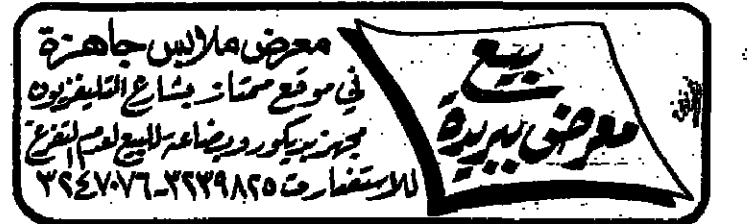 بيع
معرض ببريدة
معرض ملابس جاهزة
في موقع ممتاز بشارع التليفزيون
مجهز بديكور وبضاعة للبيع لعدم التفرغ
للاستفسار ت ٣٢٣٩٨٢٥ـ٣٢٤٧٠٧٦